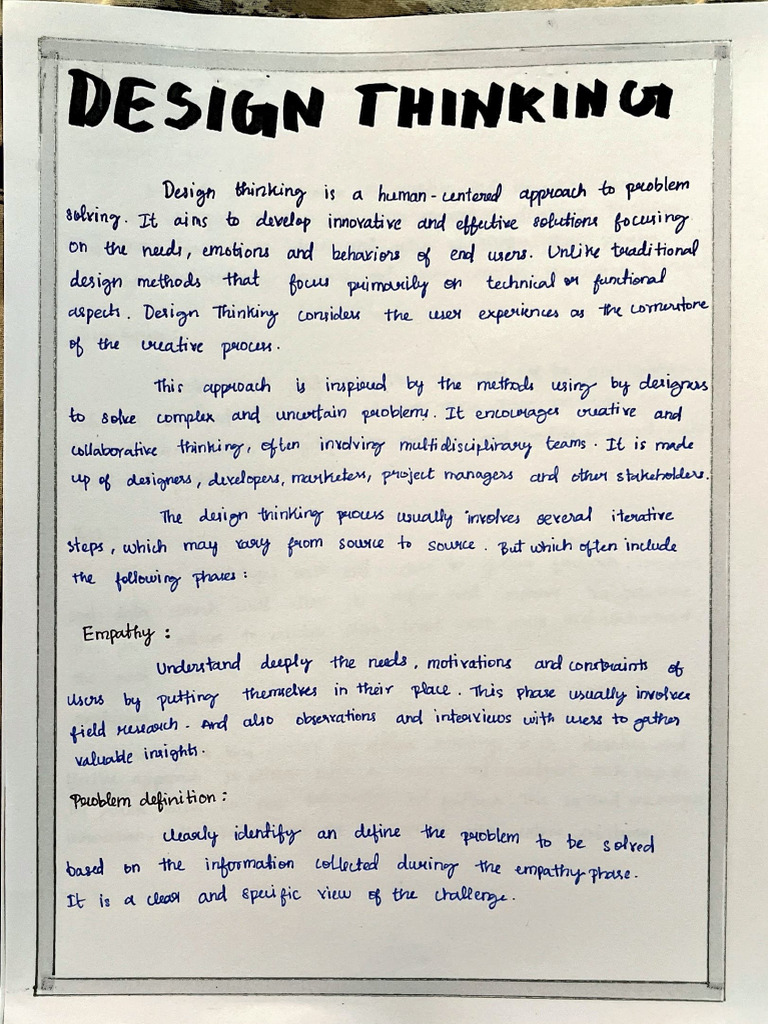 DESIGN THINKING
Design thinking is a human-centered approach to problem
solving. It aims to develop innovative and effective solutions focusing
on the needs, emotions and behaviors of end users. Unlike traditional
design methods that focus primarily on technical or functional
aspects. Design Thinking considers the user experiences as the cornerstone
of the creative process.
This approach is inspired by the methods using by designers
to solve complex and uncertain problems. It encourages creative and
collaborative thinking, often involving multidisciplinary teams. It is made
up of designers, developers, marketers, project managers and other stakeholders.
The design thinking process usually involves several iterative
steps, which may vary from source to source. But which often include
the following phases:
Empathy:
Understand deeply the needs, motivations and constraints of
users by putting themselves in their place. This phase usually involves
field research. And also observations and interviews with users to gather
valuable insights.
Problem definition:
Clearly identify an define the problem to be solved
based on the information collected during the empathy phase.
It is a clear and specific view of the challenge.